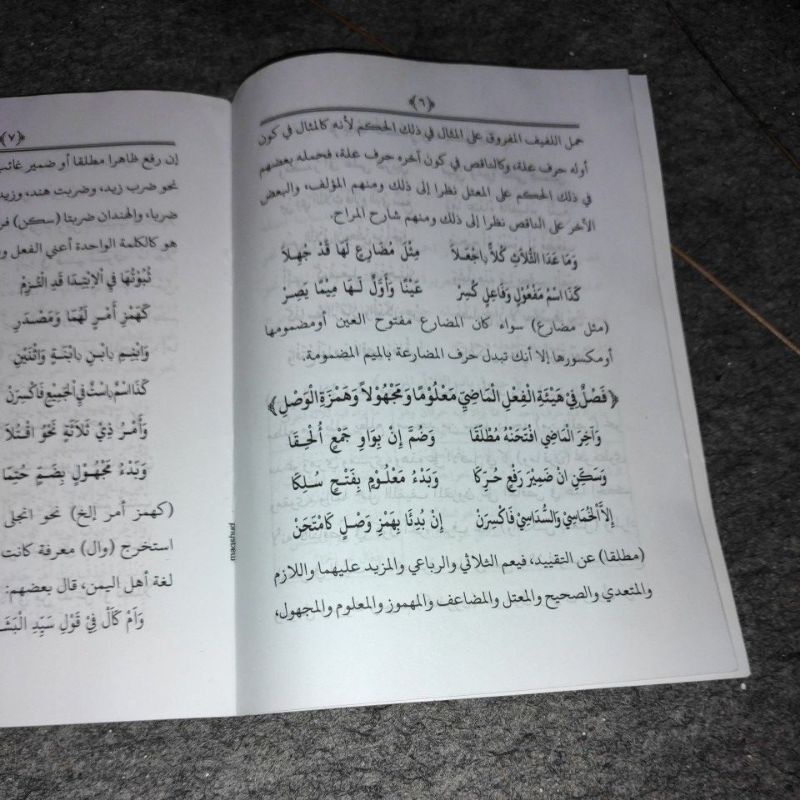 ﴿٦﴾
حمل اللفيف المفروق على المثال في ذلك الحكم لأنه كالمثال في كون
أوله حرف علة، وكالناقص في كون آخره حرف علة، فحمله بعضهم
في ذلك الحكم على المعتل نظرا إلى ذلك ومنهم المؤلف، والبعض
الآخر على الناقص نظرا إلى ذلك ومنهم شارح المراح.
وَمَا عَدَا الثُّلَاثِ كُلًّا اجْعَلَا مِثْلَ مُضَارِعٍ لَهَا قَدْ جُهِلَا
كَذَا اسْمُ مَفْعُولٍ وَفَاعِلٍ كُسِرْ عَيْنًا وَأَوَّلٌ لَهَا مِيْمًا يَصِرْ
(مثل مضارع) سواء كان المضارع مفتوح العين أومضمومها
أومكسورها إلا أنك تبدل حرف المضارعة بالميم المضمومة.
﴿فَصْلٌ فِيْ هَيْئَةِ الْفِعْلِ الْمَاضِيْ مَعْلُوْمًا وَمَجْهُوْلًا وَهَمْزَةِ الْوَصْلِ﴾
وَآخِرَ الْمَاضِي افْتَحَنْهُ مُطْلَقَا وَضُمَّ إِنْ بِوَاوِ جَمْعٍ أُلْحِقَا
وَسَكِّنِ انْ ضَمِيْرَ رَفْعٍ حُرِّكَا وَبَدْءُ مَعْلُوْمٍ بِفَتْحٍ سُلِكَا
إِلَّا الْخُمَاسِيْ وَالسُّدَاسِيْ فَاكْسِرَنْ إِنْ بُدِئَا بِهَمْزِ وَصْلٍ كَامْتَحَنْ
(مطلقا) عن التقييد، فيعم الثلاثي والرباعي والمزيد عليهما واللازم
والمتعدي والصحيح والمعتل والمضاعف والمهموز والمعلوم والمجهول،
maqshud
﴿٧﴾
إن رفع ظاهرا مطلقا أو ضمير غائب
نحو ضرب زيد، وضربت هند، وزيد
ضربا، والهندان ضربتا (سكن)
هو كالكلمة الواحدة أعني الفعل
ثُبُوْتُهَا فِي الْابْتِدَا قَدِ الْتُزِمْ
كَهَمْزِ أَمْرٍ لَهُمَا وَمَصْدَرِ
وَابْنِمٍ بِابْنٍ بِابْنَةٍ وَاثْنَيْنِ
كَذَا اسْمٌ بِاسْتٌ فِي الْجَمِيْعِ فَاكْسِرَنْ
وَأَمْرُ ذِيْ ثَلَاثَةٍ نَحْوُ اقْبَلَا
وَبَدْءُ مَجْهُوْلٍ بِضَمٍّ حُتِمَا
(كهمز أمر إلخ) نحو انجلى
استخرج (وال) معرفة كانت
لغة أهل اليمن، قال بعضهم:
وَامْ كَأَلْ فِيْ قَوْلِ سَيِّدِ